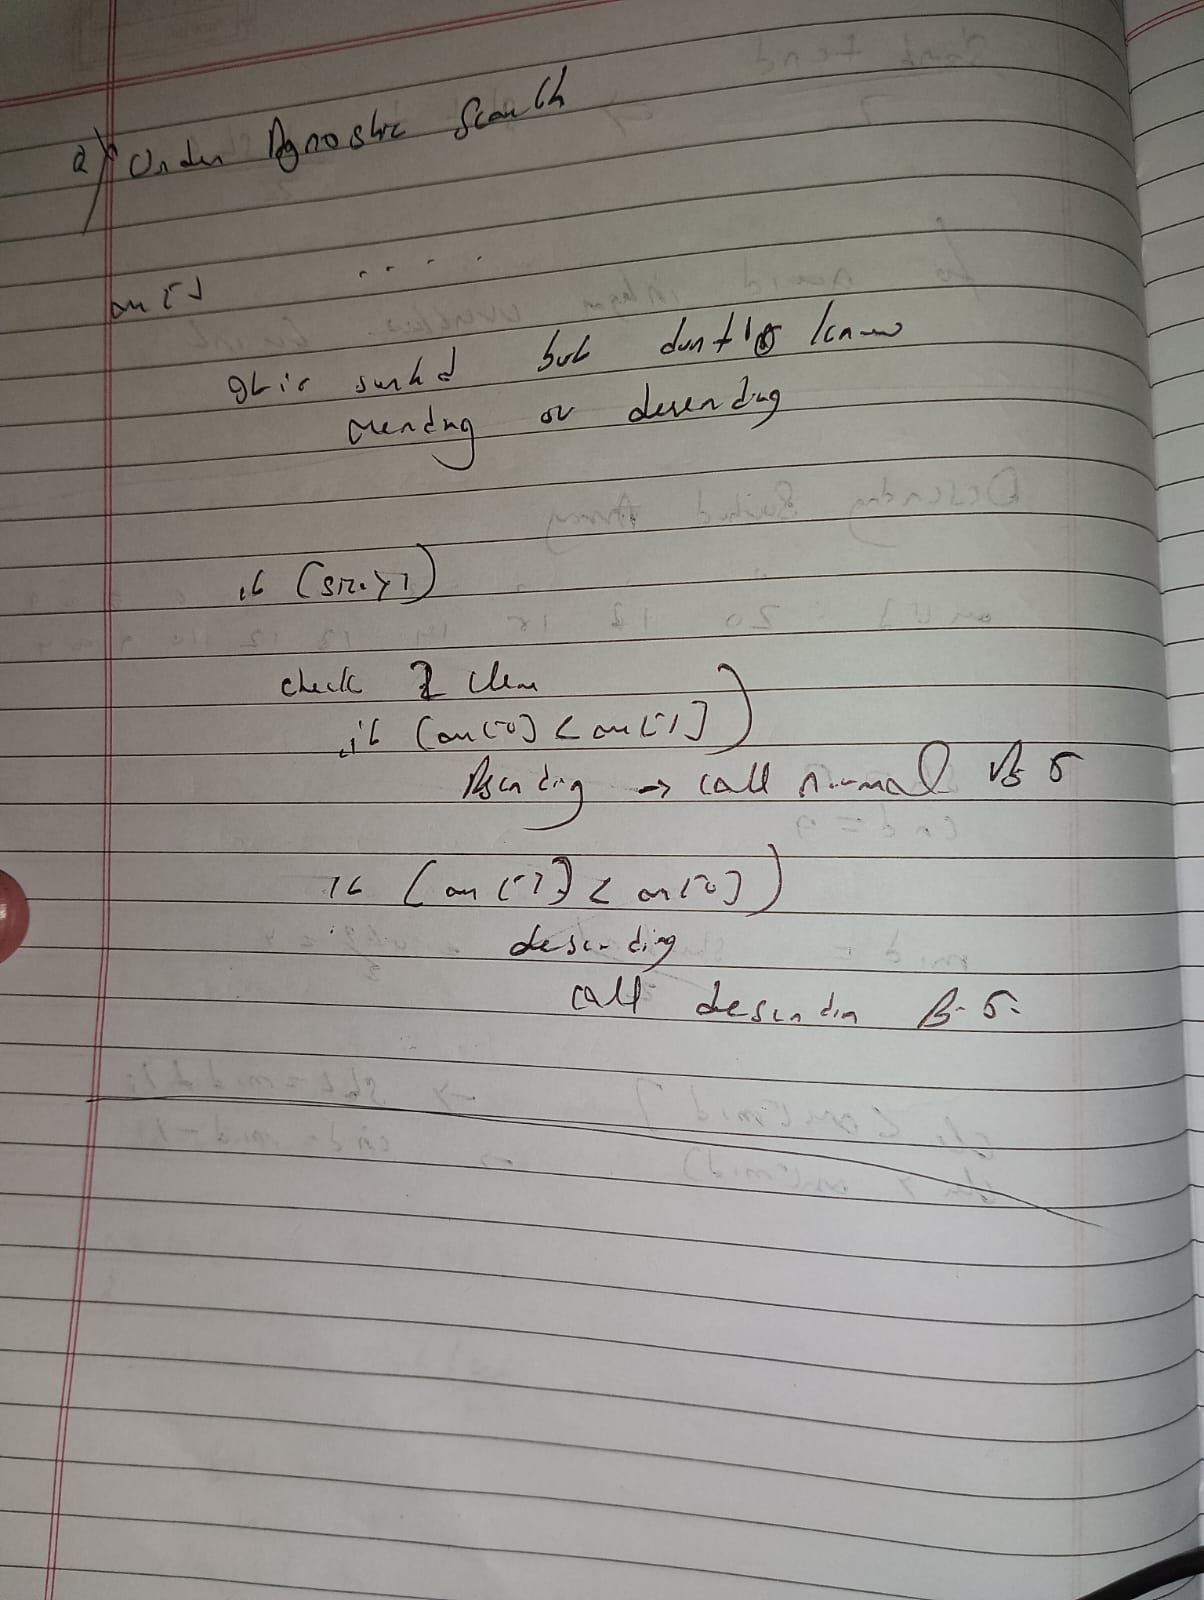 Q) Order Agnostic Search
arr[] .....
It is sorted but dont know
acending or desending
if (size>1)
check 2 elem
if (arr[0] < arr[1])
Ascending → call normal B S
if (arr[1] < arr[0])
descending
call descendin B. S.